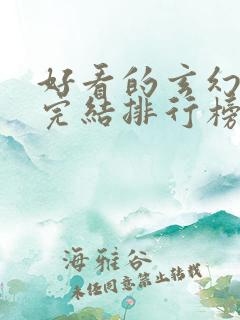 好看的玄幻
完结排行榜
海雅谷
未经同意禁止转载